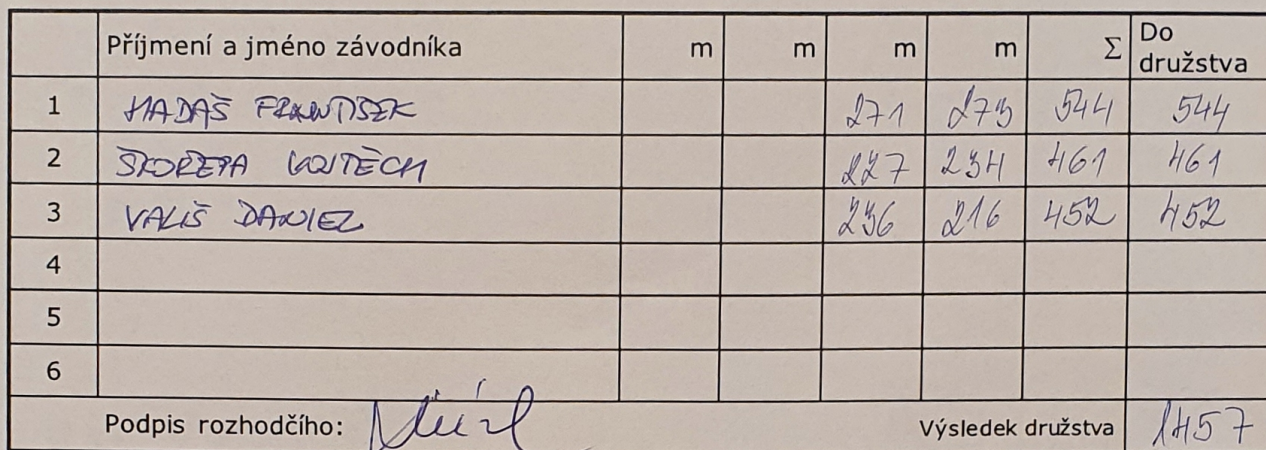 Příjmení a jméno závodníka m m m m Σ Do družstva
1 HADAŠ FRANTIŠEK 271 273 544 544
2 ŠKOŘEPA VOJTĚCH 227 234 461 461
3 VALIŠ DANIEL 236 216 452 452
4
5
6
Podpis rozhodčího: Výsledek družstva 1457